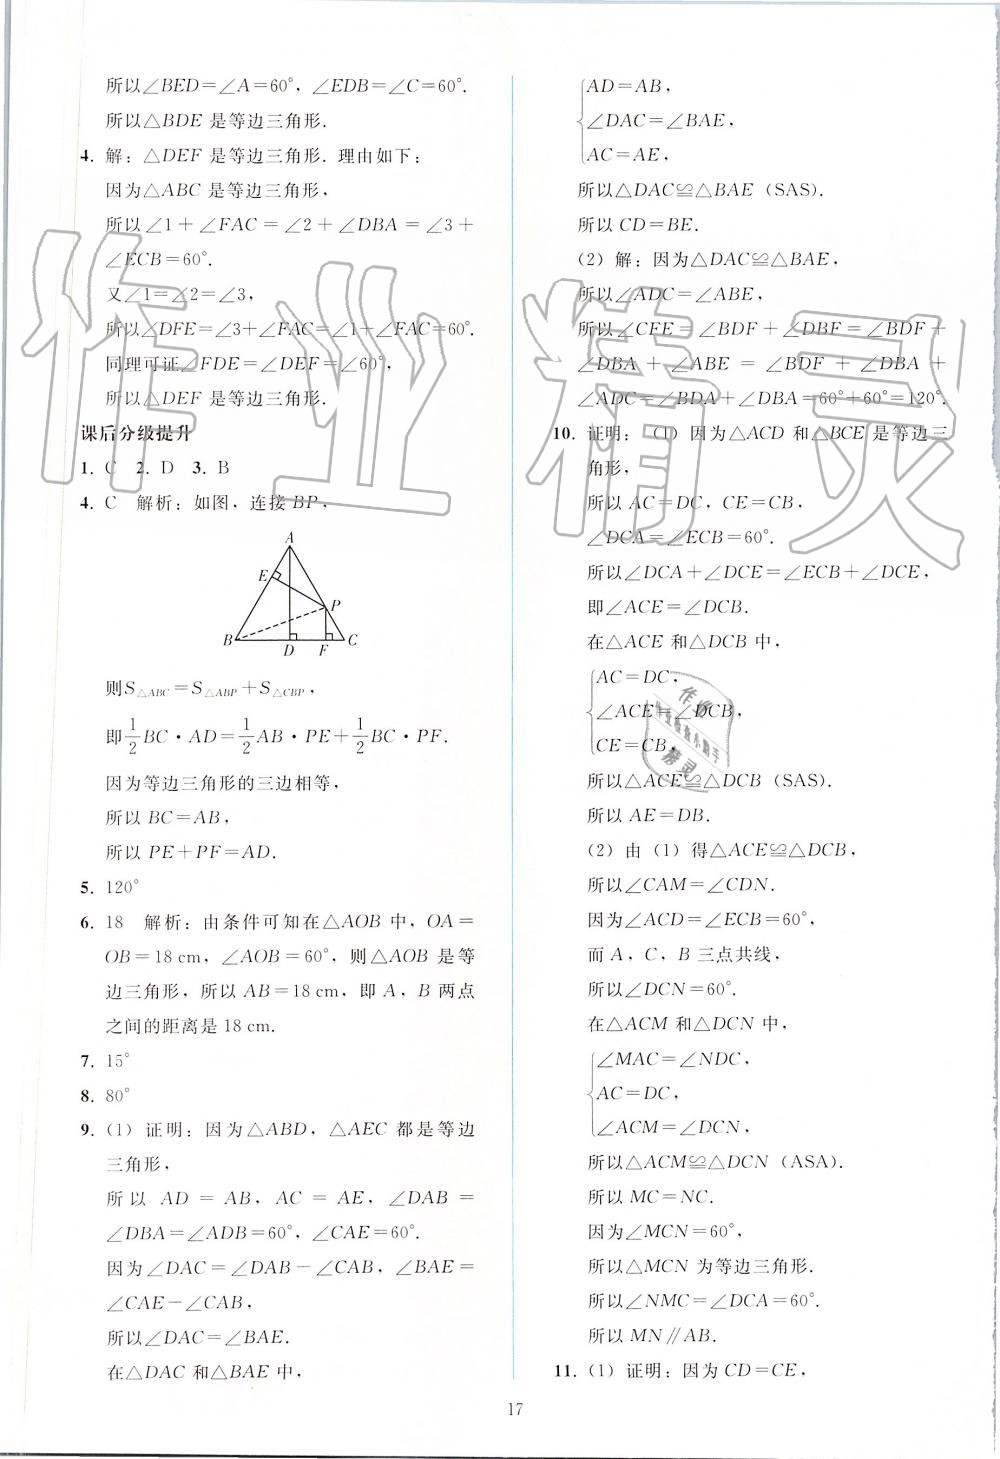 所以∠BED=∠A=60°，∠EDB=∠C=60°.
所以△BDE 是等边三角形.
4. 解：△DEF 是等边三角形. 理由如下：
因为△ABC 是等边三角形，
所以∠1+∠FAC=∠2+∠DBA=∠3+
∠ECB=60°.
又∠1=∠2=∠3，
所以∠DFE=∠3+∠FAC=∠1+∠FAC=60°.
同理可证∠FDE=∠DEF=∠60°，
所以△DEF 是等边三角形.
课后分级提升
1. C 2. D 3. B
4. C 解析：如图，连接 BP，
A
E
P
B
D
F
C
则S△ABC=S△ABP+S△CBP，
即1/2BC·AD=1/2AB·PE+1/2BC·PF.
因为等边三角形的三边相等，
所以 BC=AB，
所以 PE+PF=AD.
5. 120°
6. 18 解析：由条件可知在△AOB 中，OA=
OB=18 cm，∠AOB=60°，则△AOB 是等
边三角形，所以 AB=18 cm，即 A，B 两点
之间的距离是 18 cm.
7. 15°
8. 80°
9. (1) 证明：因为△ABD，△AEC 都是等边
三角形，
所以 AD=AB，AC=AE，∠DAB=
∠DBA=∠ADB=60°，∠CAE=60°.
因为∠DAC=∠DAB−∠CAB，∠BAE=
∠CAE−∠CAB，
所以∠DAC=∠BAE.
在△DAC 和△BAE 中，
AD=AB，
∠DAC=∠BAE，
AC=AE，
所以△DAC≌△BAE (SAS).
所以 CD=BE.
(2) 解：因为△DAC≌△BAE，
所以∠ADC=∠ABE，
所以∠CFE=∠BDF+∠DBF=∠BDF+
∠DBA+∠ABE=∠BDF+∠DBA+
∠ADC=∠BDA+∠DBA=60°+60°=120°.
10. 证明：(1) 因为△ACD 和△BCE 是等边三
角形，
所以 AC=DC，CE=CB，
∠DCA=∠ECB=60°.
所以∠DCA+∠DCE=∠ECB+∠DCE，
即∠ACE=∠DCB.
在△ACE 和△DCB 中，
AC=DC，
∠ACE=∠DCB，
CE=CB，
所以△ACE≌△DCB (SAS).
所以 AE=DB.
(2) 由 (1) 得△ACE≌△DCB，
所以∠CAM=∠CDN.
因为∠ACD=∠ECB=60°，
而 A，C，B 三点共线，
所以∠DCN=60°.
在△ACM 和△DCN 中，
∠MAC=∠NDC，
AC=DC，
∠ACM=∠DCN，
所以△ACM≌△DCN (ASA).
所以 MC=NC.
因为∠MCN=60°，
所以△MCN 为等边三角形.
所以∠NMC=∠DCA=60°.
所以 MN∥AB.
11. (1) 证明：因为 CD=CE，
17
作业精灵